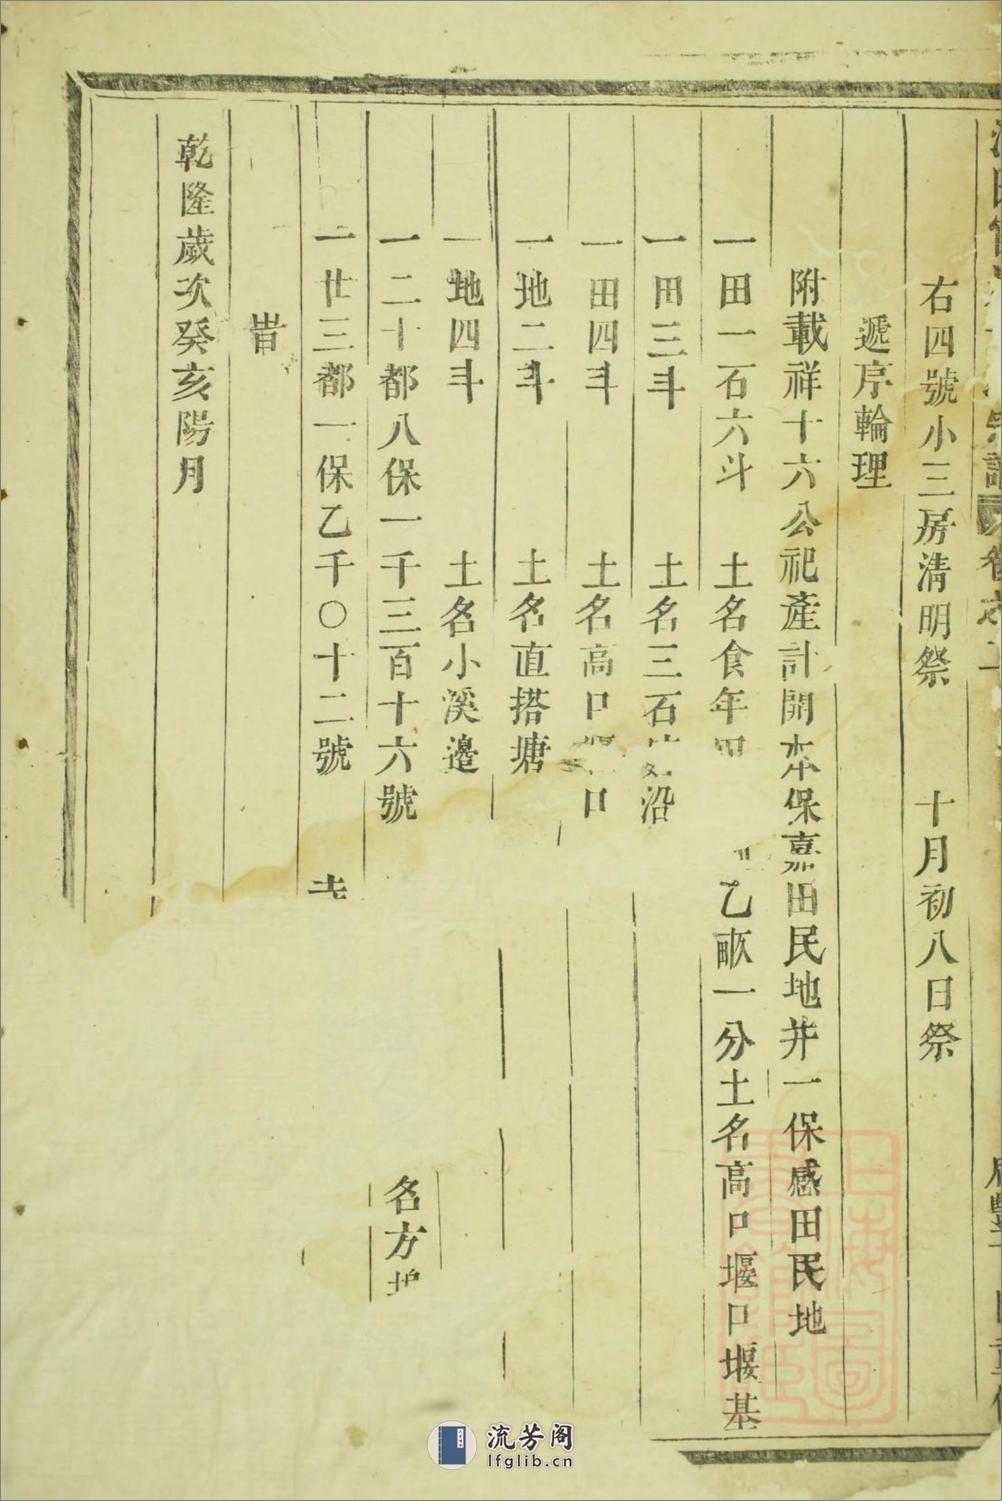 右四號小三房清明祭 十月初八日祭
遞序輪理
附載祥十六公祀產計開本保嘉田民地并一保感田民地
一田一石六斗 土名食年 乙畝一分土名高口堰口堰基
一田三斗 土名三石 沿
一田四斗 土名高口 口
一地二斗 土名直搭塘
一地四斗 土名小溪邊
一二十都八保一千三百十六號 名方
一廿三都一保乙千〇十二號
旹
乾隆歲次癸亥陽月
流芳阁
lfglib.cn